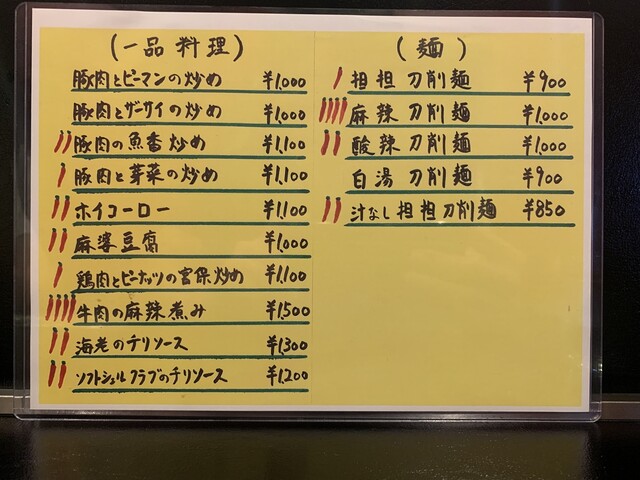 (一品料理)
豚肉とピーマンの炒め ¥1,000
豚肉とザーサイの炒め ¥1,000
豚肉の魚香炒め ¥1,100
豚肉と芽菜の炒め ¥1,100
ホイコーロー ¥1,100
麻婆豆腐 ¥1,000
鶏肉とピーナッツの宮保炒め ¥1,100
牛肉の麻辣煮み ¥1,500
海老のチリソース ¥1,300
ソフトシェルクラブのチリソース ¥1,200
(麺)
担担刀削麺 ¥900
麻辣刀削麺 ¥1,000
酸辣刀削麺 ¥1,000
白湯刀削麺 ¥900
汁なし担担刀削麺 ¥850